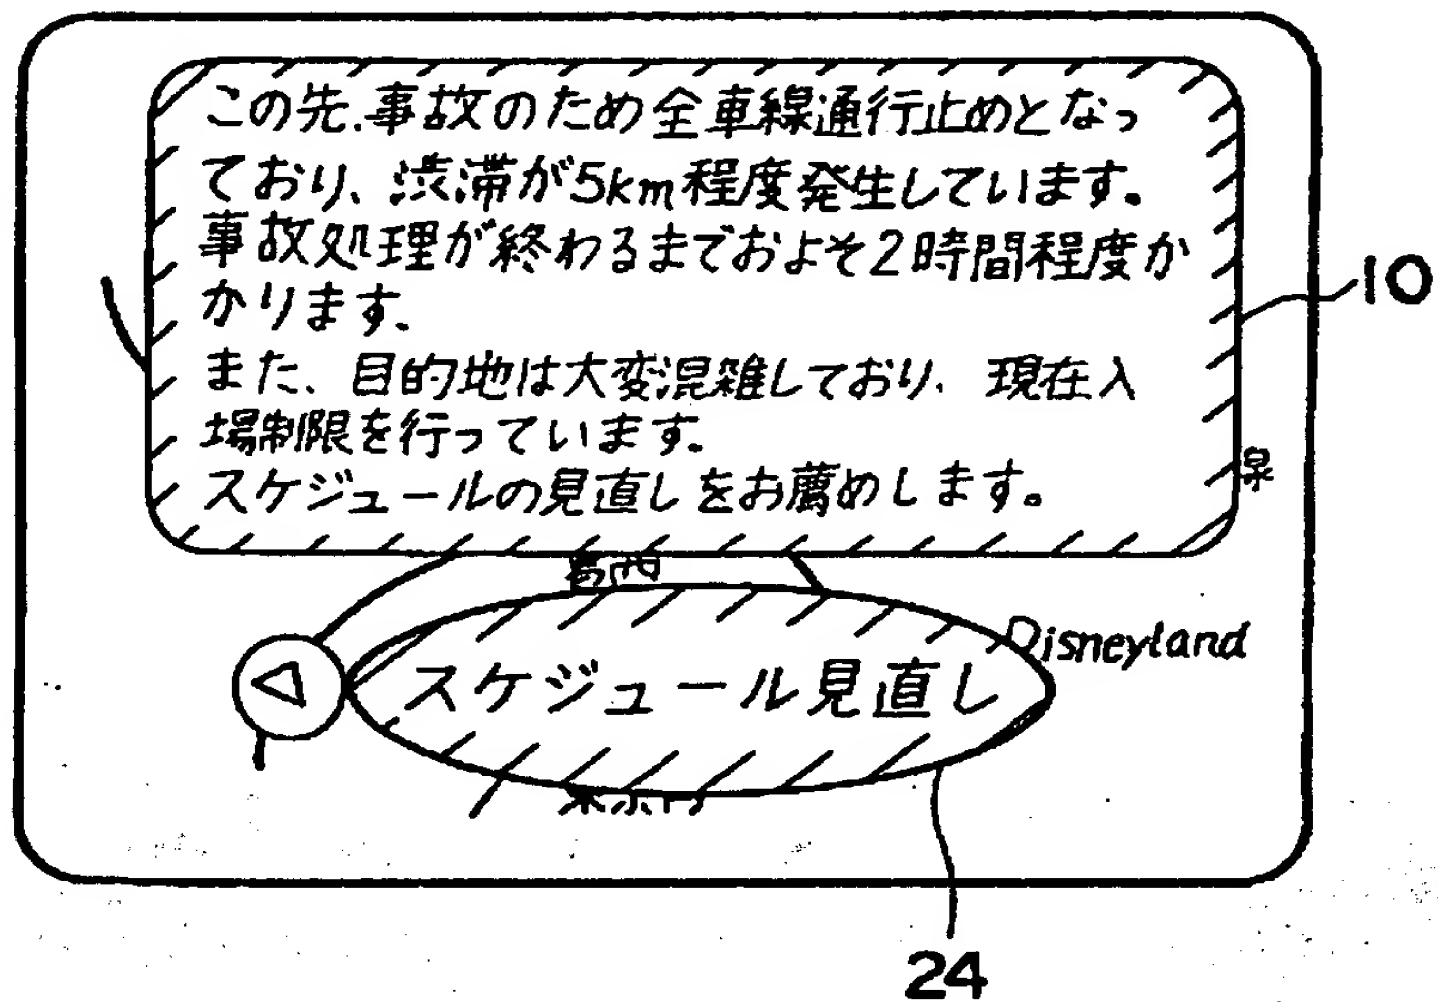 この先、事故のため全車線通行止めとなっ
ており、渋滞が5km程度発生しています。
事故処理が終わるまでおよそ2時間程度か
かります。
また、目的地は大変混雑しており、現在入
場制限を行っています。
スケジュールの見直しをお薦めします。
10
葛西
Disneyland
スケジュール見直し
24